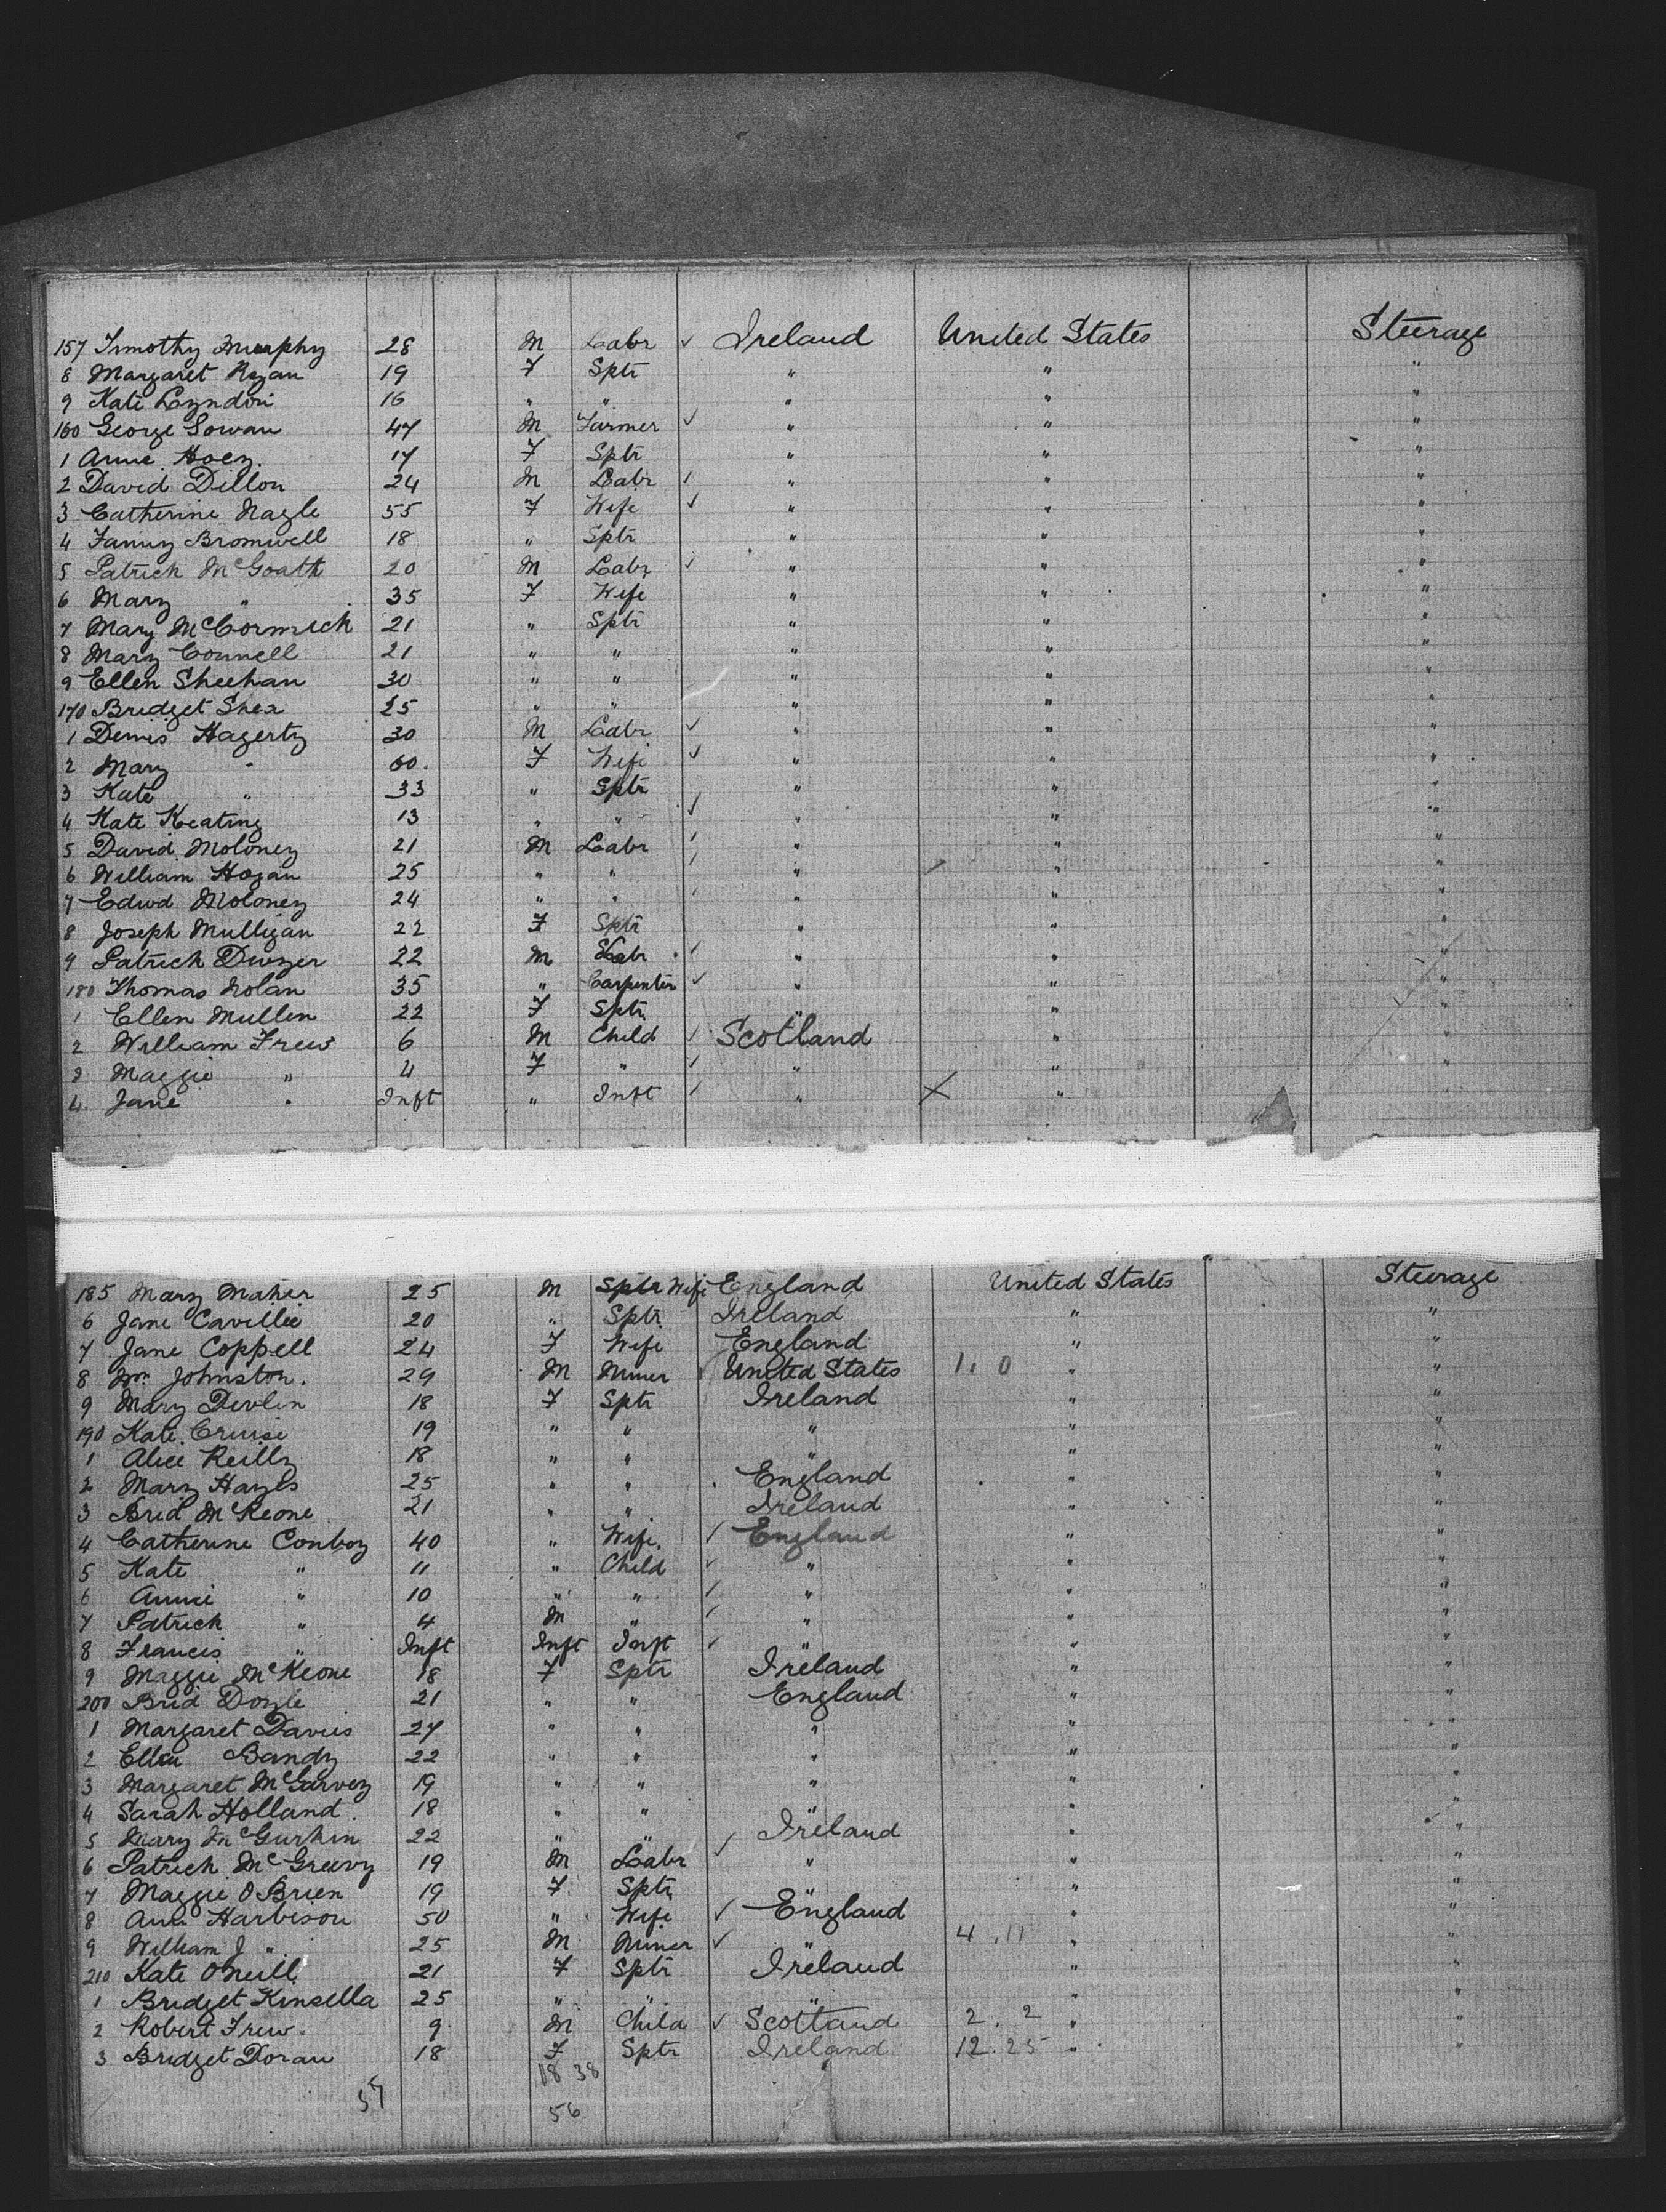 157 Timothy Murphy 28 M Labr ✓ Ireland United States Steerage
8 Margaret Ryan 19 F Sptr " " "
9 Kate Lyndon 16 " " " " "
160 George Sowan 47 M Farmer ✓ " " "
1 Anne Hoey 17 F Sptr " " "
2 David Dillon 24 M Labr ✓ " " "
3 Catherine Nagle 55 F Wife ✓ " " "
4 Fanny Bromwell 18 " Sptr " " "
5 Patrick McGoath 20 M Labr ✓ " " "
6 Mary " 35 F Wife " " "
7 Mary McCormick 21 " Sptr " " "
8 Mary Connell 21 " " " " "
9 Ellen Sheehan 30 " " " " "
170 Bridget Shea 25 " " " " "
1 Denis Hagerty 30 M Labr ✓ " " "
2 Mary " 60. F Wife ✓ " " "
3 Kate " 33 " Sptr " " "
4 Kate Keating 13 " " ✓ " " "
5 David Moloney 21 M Labr ✓ " " "
6 William Hogan 25 " " ✓ " " "
7 Edwd Moloney 24 " " ✓ " " "
8 Joseph Mulligan 22 F Sptr " " "
9 Patrick Dwyer 22 M Labr ✓ " " "
180 Thomas Nolan 35 " Carpenter ✓ " " "
1 Ellen Mullen 22 F Sptr " " "
2 William Frew 6 M Child ✓ Scotland " "
3 Maggie " 4 F " ✓ " " "
4 Jane " Inft " Inft ✓ " X " "
185 Mary Maher 25 M Sptr Wife England United States Steerage
6 Jane Cavillie 20 " Sptr Ireland " "
7 Jane Coppell 24 F Wife England " "
8 Wm Johnston. 29 M Miner United States 1. 0 " "
9 Mary Devlin 18 F Sptr Ireland " "
190 Kate Cruise 19 " " " " "
1 Alice Reilly 18 " " " " "
2 Mary Hayes 25 " " England " "
3 Brid McKeone 21 " " Ireland " "
4 Catherine Conboy 40 " Wife ✓ England " "
5 Kate " 11 " Child ✓ " " "
6 Annie " 10 " " ✓ " " "
7 Patrick " 4 M " ✓ " " "
8 Francis " Inft Inft Inft ✓ " " "
9 Maggie McKeone 18 F Sptr Ireland " "
200 Brid Doyle 21 " " England " "
1 Margaret Davies 27 " " " " "
2 Ellen Bandy 22 " " " " "
3 Margaret McGarvey 19 " " " " "
4 Sarah Holland. 18 " " " " "
5 Mary McGurkin 22 " " ✓ Ireland " "
6 Patrick McGreevy 19 M Labr " " "
7 Maggie O'Brien 19 F Sptr " " "
8 Ann Harbison 50 " Wife ✓ England " "
9 William J " 25 M Miner ✓ " 4.11 " "
210 Kate O'Neill 21 F Sptr Ireland " "
1 Bridget Kinsella 25 " " " " "
2 Robert Frew. 9 M Child ✓ Scotland 2. 2 " "
3 Bridget Doran 18 F Sptr Ireland 12.25 " "
18 38
57 56